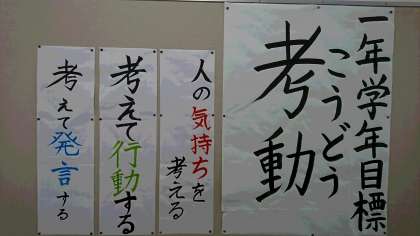 一年学年目標
こうどう
考動
人の気持ちを
考える
考えて行動する
考えて発言する